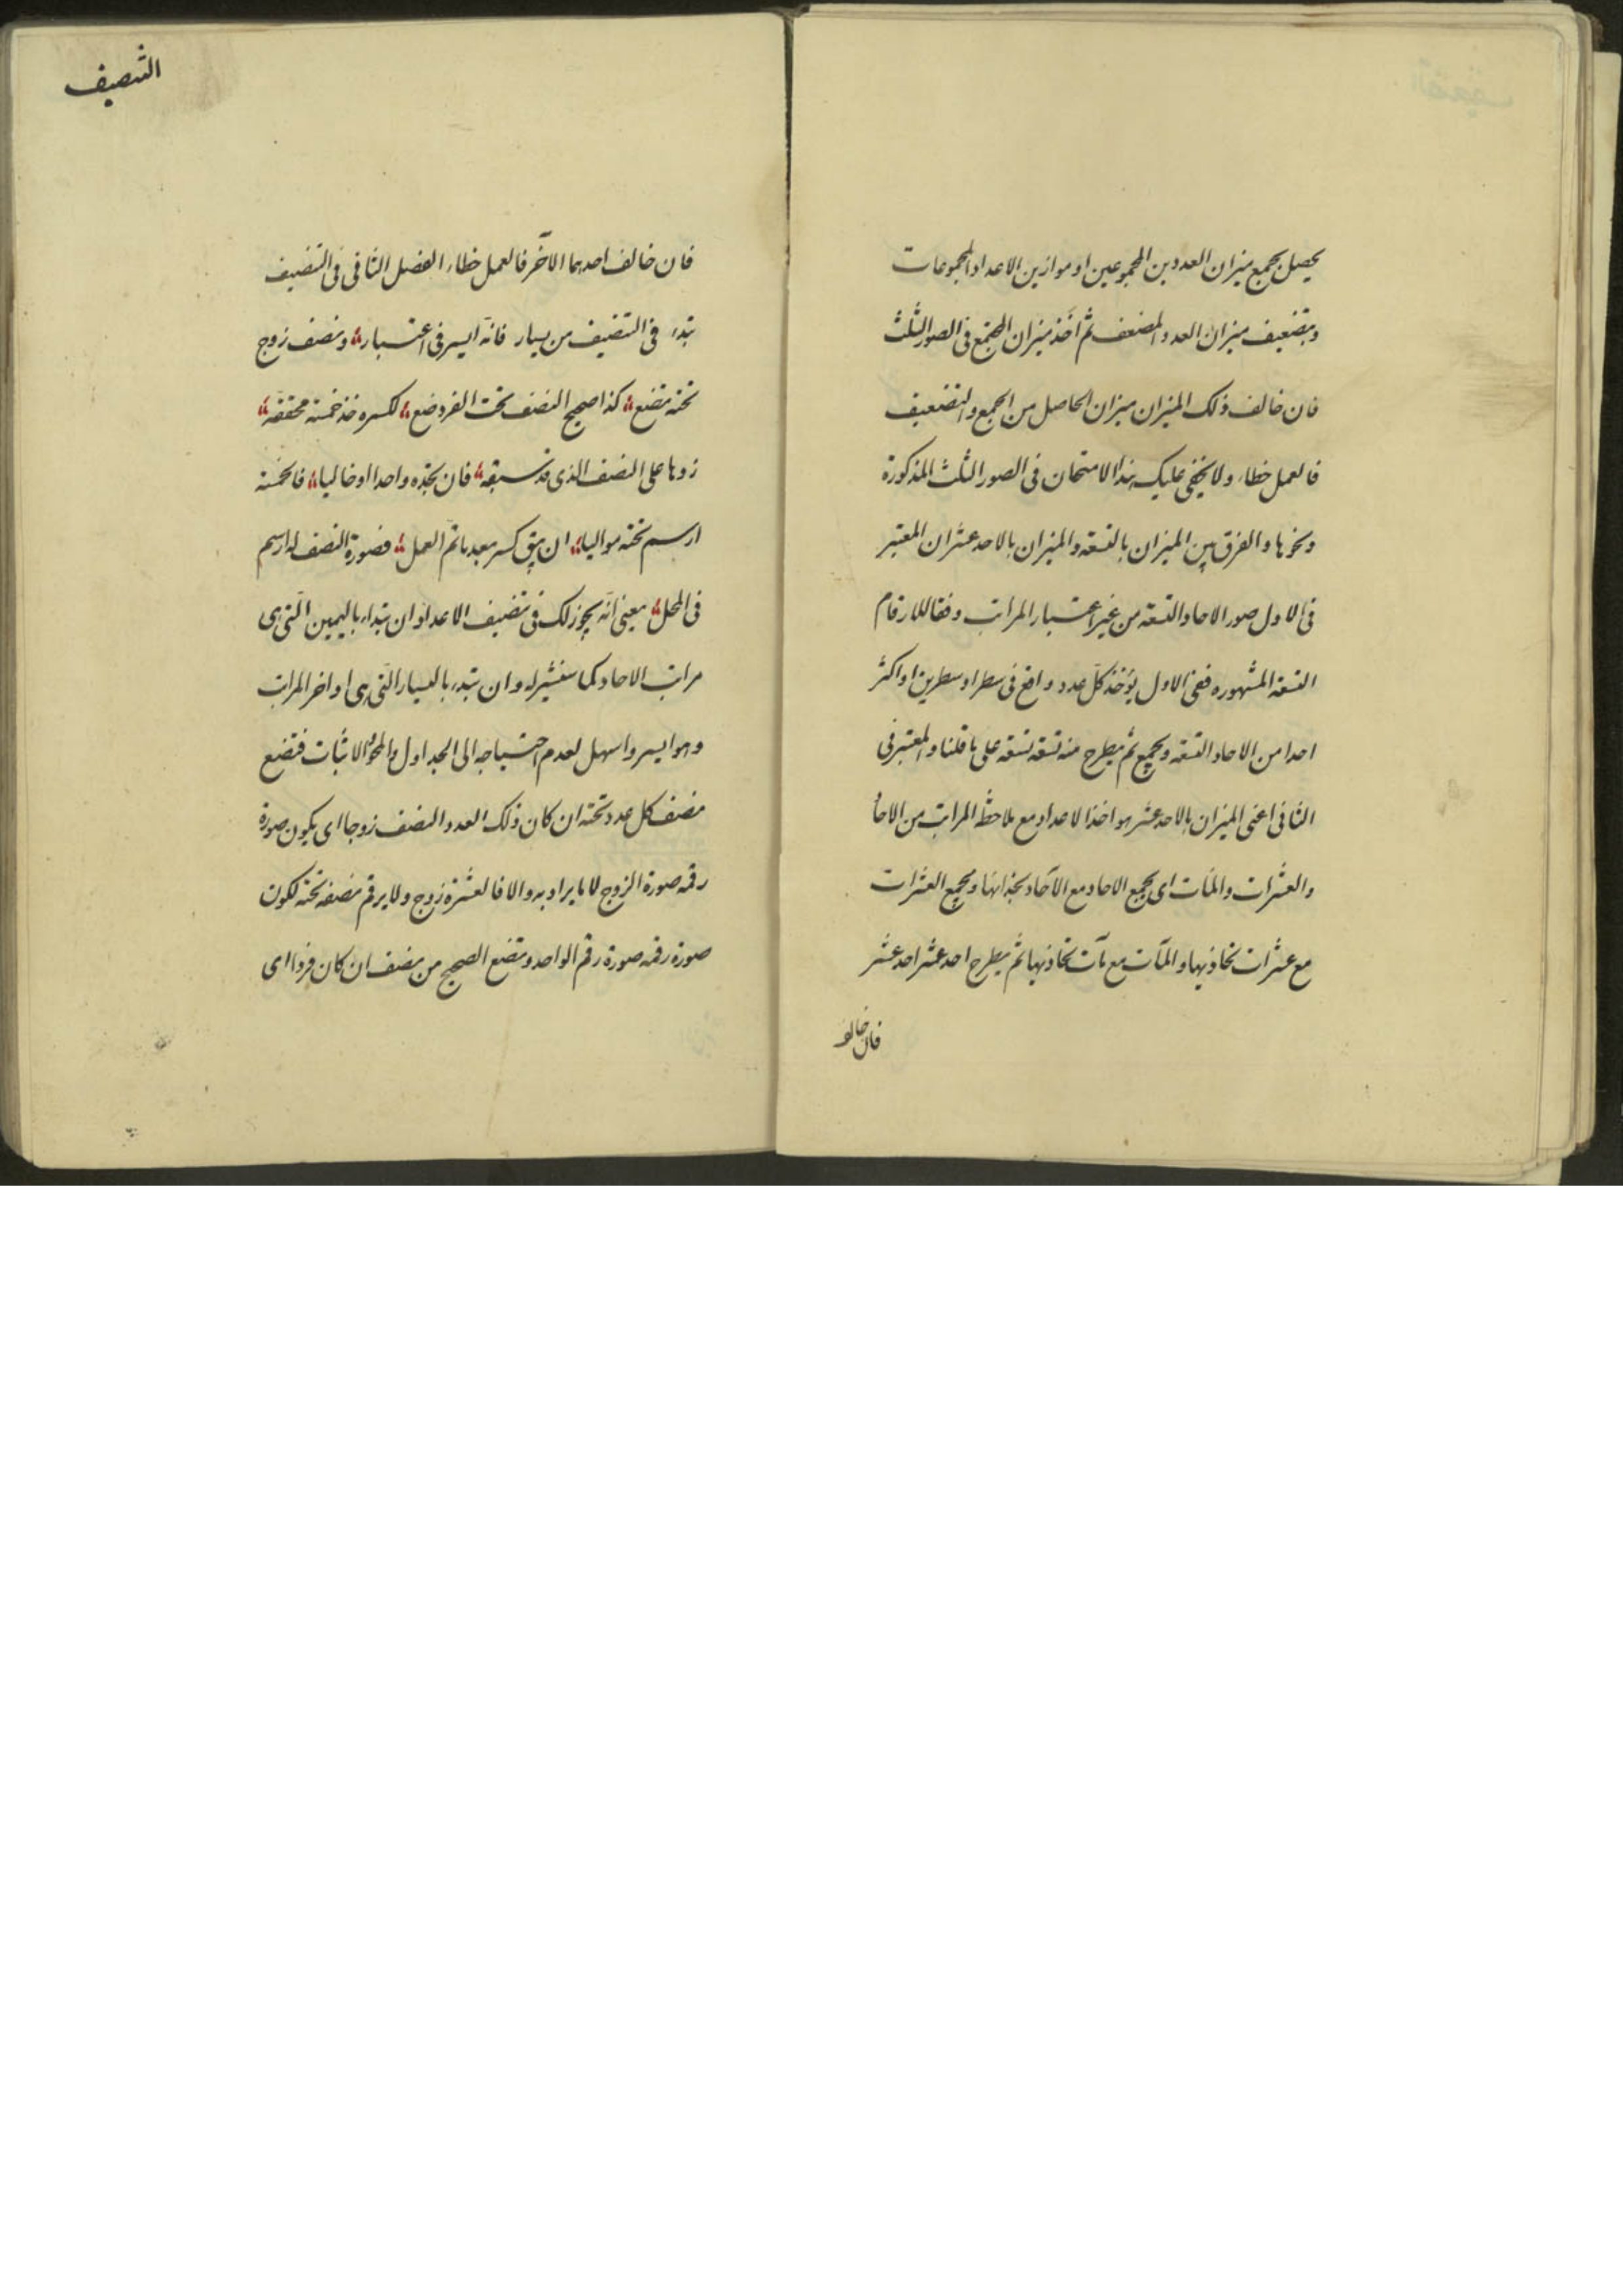 يحصل بجمع ميزان العددين المجموعين او موازين الاعداد المجموعات
وبتضعيف ميزان العدد المضعف ثم اخذ ميزان المجتمع فى الصور الثلث
فان خالف ذلك الميزان ميزان الحاصل من الجمع والتضعيف
فالعمل خطاء ولا يخفى عليك هذا الامتحان فى الصور الثلث المذكورة
ونحوها والفرق بين الميزان بالتسعة والميزان بالاحد عشر ان المعتبر
فى الاول صور الاحاد التسعة من غير اعتبار المراتب وفقا للارقام
التسعة المشهوره ففى الاول يؤخذ كل عدد واقع فى سطر او سطرين او اكثر
احدا من الاحاد التسعة ويجمع ثم يطرح منه تسعة تسعة على ما قلنا والمعتبر فى
الثانى اعنى الميزان بالاحد عشر هو اخذ الاعداد مع ملاحظة المراتب من الاحاد
والعشرات والمئات اى يجمع الاحاد مع الآحاد بحذائها ويجمع العشرات
مع عشرات تحاذيها والمآت مع مآت تحاذيها ثم يطرح احد عشر احد عشر
فان خالف
التنصيف
فان خالف احدهما الآخر فالعمل خطاء الفصل الثانى فى التنصيف
تبدء فى التنصيف من يسار فانه ايسر فى اعتبار؛ ونصف زوج
تحته تضع؛ كذا صحيح النصف تحت الفرد ضع؛ لكسره خذ خمسة محققة؛
زدها على النصف الذى قد سبقه؛ فان تجده واحدا او خاليا؛ فالخمسة
ارسم تحته مواليا؛ ان يبق كسر بعد ما تم العمل؛ فصورة النصف له ارسم
فى المحل؛ يعنى انه يجوز لك فى تنصيف الاعداد ان تبتداء باليمين التى هى
مراتب الاحاد كما سنشير له وان تبدء باليسار التى هى اواخر المراتب
وهو ايسر واسهل لعدم احتياجه الى الجداول والمحو والاثبات فتضع
نصف كل عدد تحته ان كان ذلك العدد المنصف زوجا اى يكون صورة
رقمه صورة الزوج لا ما يراد به والا فالعشرة زوج ولا يرقم نصفه تحته لكون
صورة رقمه صورة رقم الواحد وتضع الصحيح من نصف ان كان فردا اى